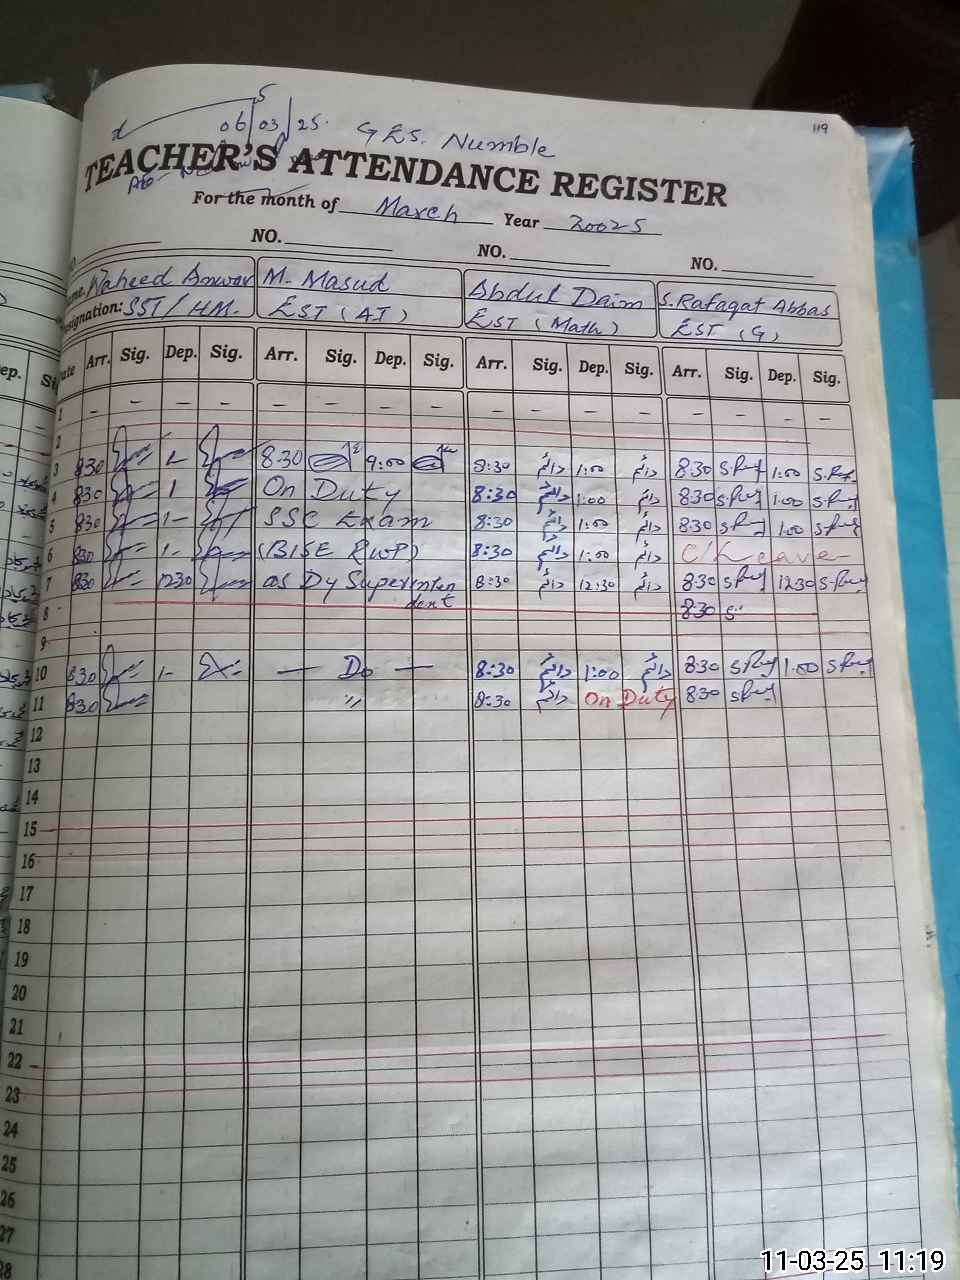 119
06/03/25. GES. Numble
TEACHER'S ATTENDANCE REGISTER
For the month of March Year 20025
NO. NO. NO.
Waheed Anwar M. Masud Abdul Daim S. Rafaqat Abbas
Designation: SST/HM. EST (AT) EST (Math) EST (G)
Arr. Sig. Dep. Sig. Arr. Sig. Dep. Sig. Arr. Sig. Dep. Sig. Arr. Sig. Dep. Sig.
1 - - - - - - - - - - - - - - - -
2
3 830 1- 8:30 9:00 8:30 دائم 1:00 دائم 830 1:00
4 830 1 On Duty 8:30 دائم 1:00 دائم 830 1:00
5 830 1- SSC Exam 8:30 دائم 1:00 دائم 830 1.00
6 830 1- (BISE RWP) 8:30 دائم 1:00 دائم C/Leave
7 830 1230 as Dy Superinten 8:30 دائم 12:30 دائم 830 1230
dent
8 830 S
9
10 830 1- — Do — 8:30 دائم 1:00 دائم 830 1.00
11 830 " 8:30 دائم On Duty 830
12
13
14
15
16
17
18
19
20
21
22
23
24
25
26
27
28
11-03-25 11:19